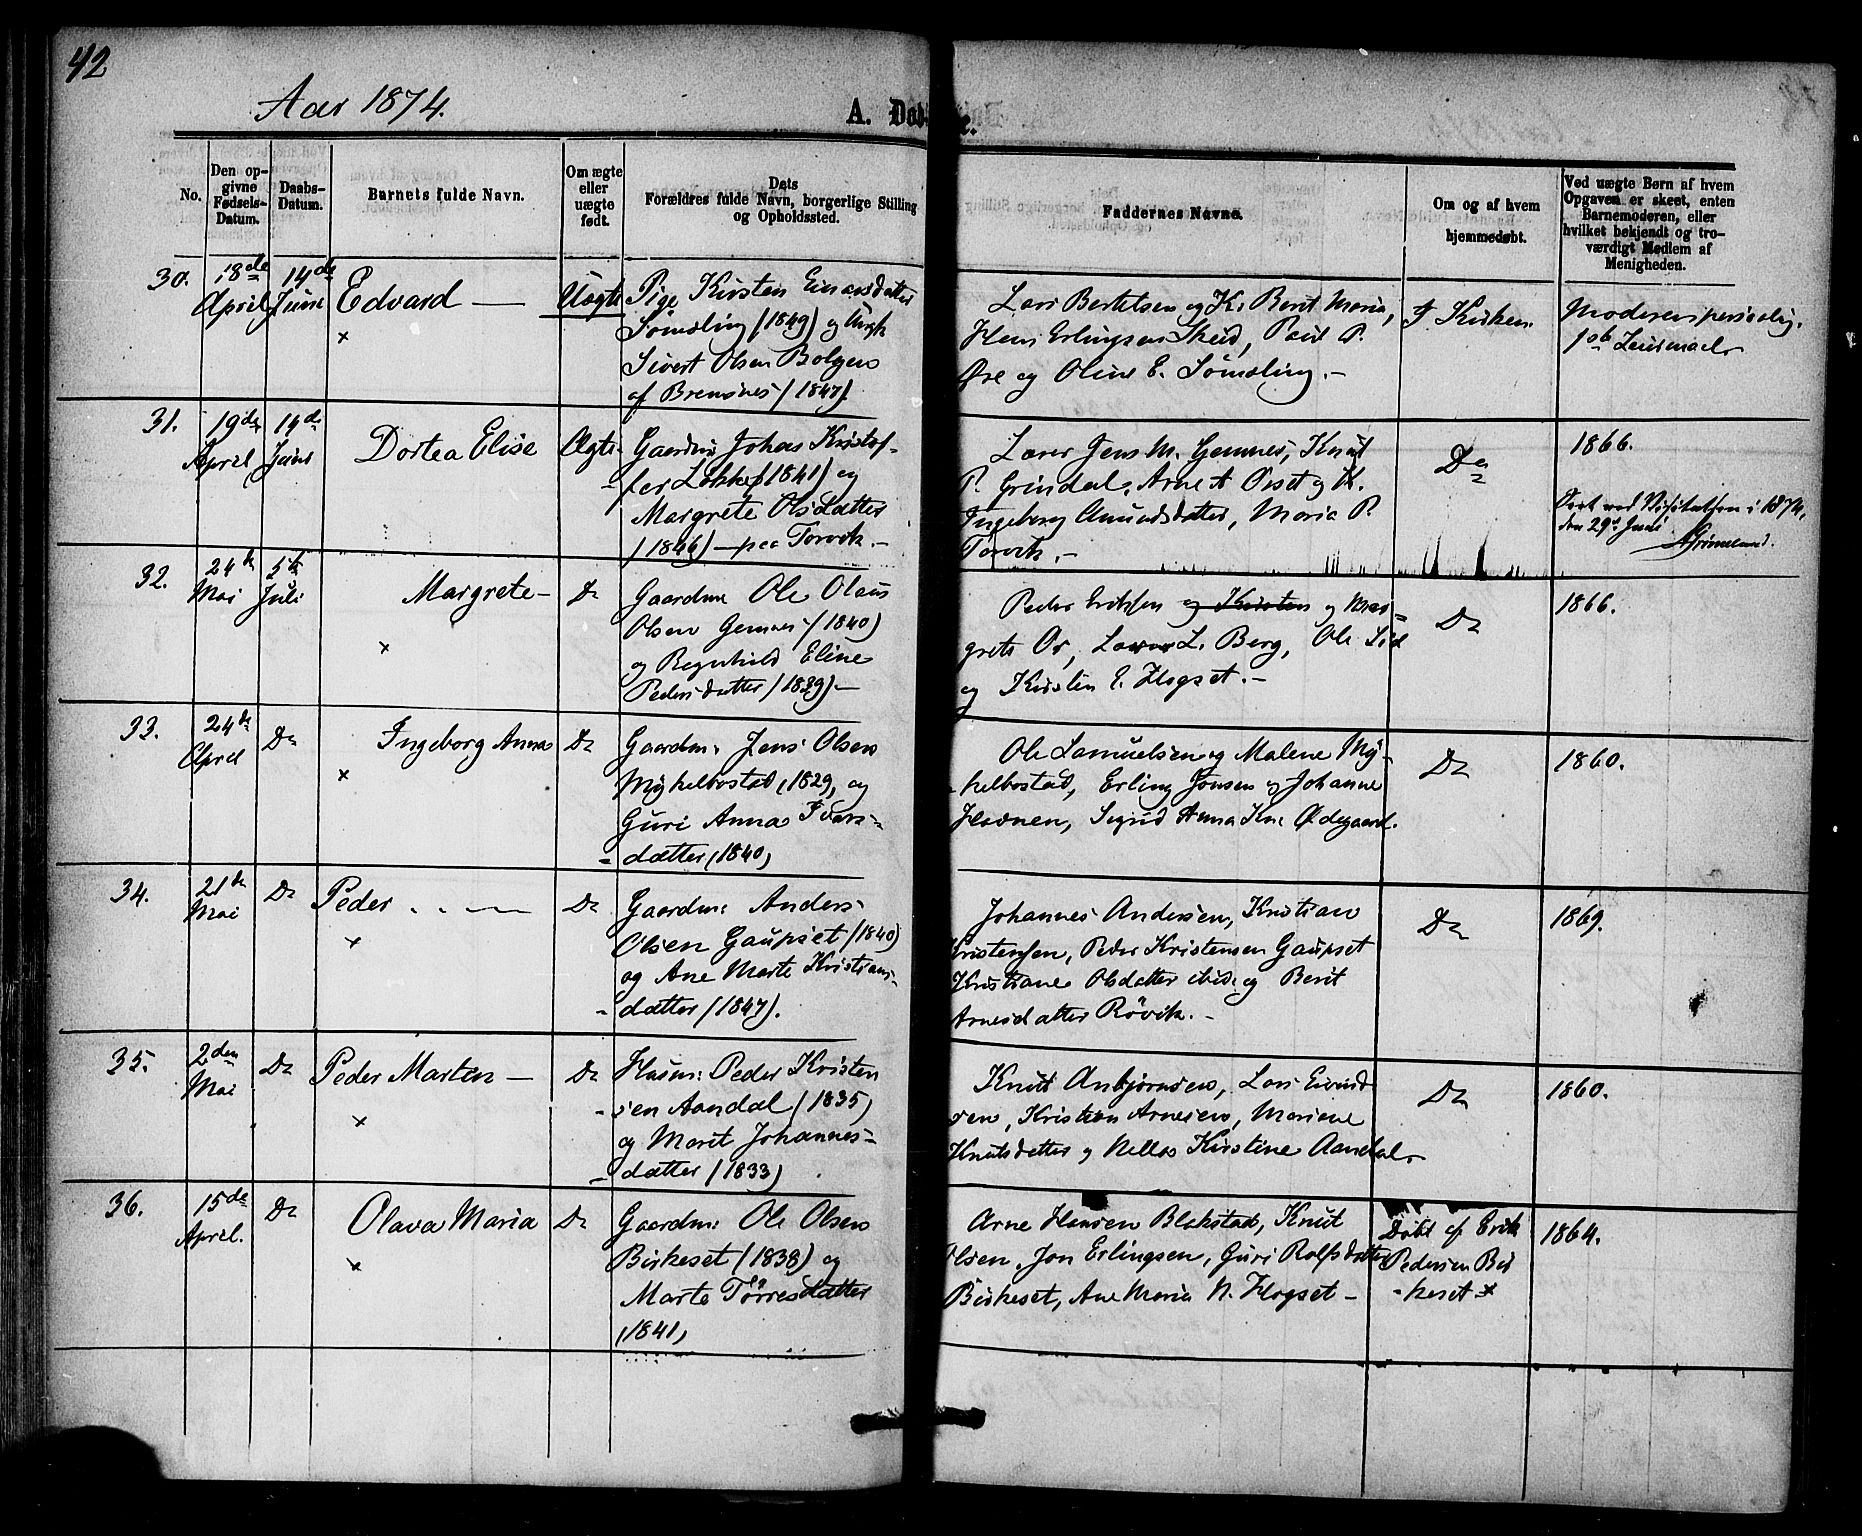 42
Aar 1874.
A. Død
e.
No.
Den op-
givne
Fødsels-
Datum.
Daabs-
Datum.
Barnets fulde Navn.
Om ægte
eller
uægte
født.
Dets
Forældres fulde Navn, borgerlige Stilling
og Opholdssted.
Faddernes Navne.
Om og af hvem
hjemmedøbt.
Ved uægte Børn af hvem
Opgaven er skeet, enten
Barnemoderen, eller
hvilket bekjendt og tro-
værdigt Medlem af
Menigheden.
30.
18de
April
14de
Juni
Edvard —
×
Uægte
Pige Kirsten Einarsdatter
Sømsling (1849) og Ungk
Sivert Olsen Bolgen
af Bremsnes (1847).
Lars Bertelsen og K. Berit Maria,
Hans Erlingsen Skeid, Paul P.
Øre og Oline E. Sømsling. –
I Kirken
Moderen personlig.
1ste Leiermaal
31.
19de
April
14de
Juni
Dortea Elise
Ægte
Gaardm: Johan Kristof-
fer Løkke (1841) og
Margrete Olsdatter
(1846) – paa Torvik. –
Lærer Jens M. Gemnes, Knut
P. Grindal, Arne A Orset og K.
Ingeborg Amundsdatter, Maria P.
Torvik. –
Do
1866.
Seet ved Visitatsen i 1874,
den 29de Juni
AGrimelund.
32.
24de
Mai
5te
Juli
Margrete –
×
Do
Gaardm Ole Olaus
Olsen Gemnes (1840)
og Regnhild Eline
Pedersdatter (1839) –
Peder Eriksen og Kirsten og Mar-
grete Or, Lærer L. Berg, Ole Sil
og Kirstin E. Hogset. –
Do
1866.
33.
24de
April
Do
Ingeborg Anna
×
Do
Gaardm: Jens Olsen
Myhelbostad (1829) og
Guri Anna Ivars-
- datter (1840)
Ole Samuelsen og Malene My-
- helbostad, Erling Jonsen og Johanne
Havnen, Sigrid Anna Kn. Ødegaard.
Do
1860.
34.
21de
Mai
Do
Peder . . —
×
Do
Gaardm: Anders
Olsen Gaupset (1840)
og Ane Marte Kristians-
- datter (1847).
Johannes Andersen, Kristian
Kristensen, Peder Kristensen Gaupset
Kristiane Olsdatter ibid. og Berit
Arnesdatter Røvik. –
Do
1869.
35.
2den
Mai
Do
Peder Martin –
×
Do
Husm: Peder Kristen
- sen Aandal (1835)
og Marit Johannes-
- datter (1833)
Knut Anbjørnsen, Lars Eivind
sen, Kristian Arnesen, Mariane
Knutsdatter og Nella Kirstine Aandal.
Do
1860.
36.
15de
April.
Do
Olava Maria
×
Do
Gaardm: Ole Olsen
Birkeset (1838) og
Marte Tørresdatter
(1841)
Arne Hansen Blakstad, Knut
Olsen, Jon Erlingsen, Guri Rolfsdatter
Birkeset, Ane Maria N. Hogset –
Døbt af Erik
Pedersen Bir
- keset ×
1864.